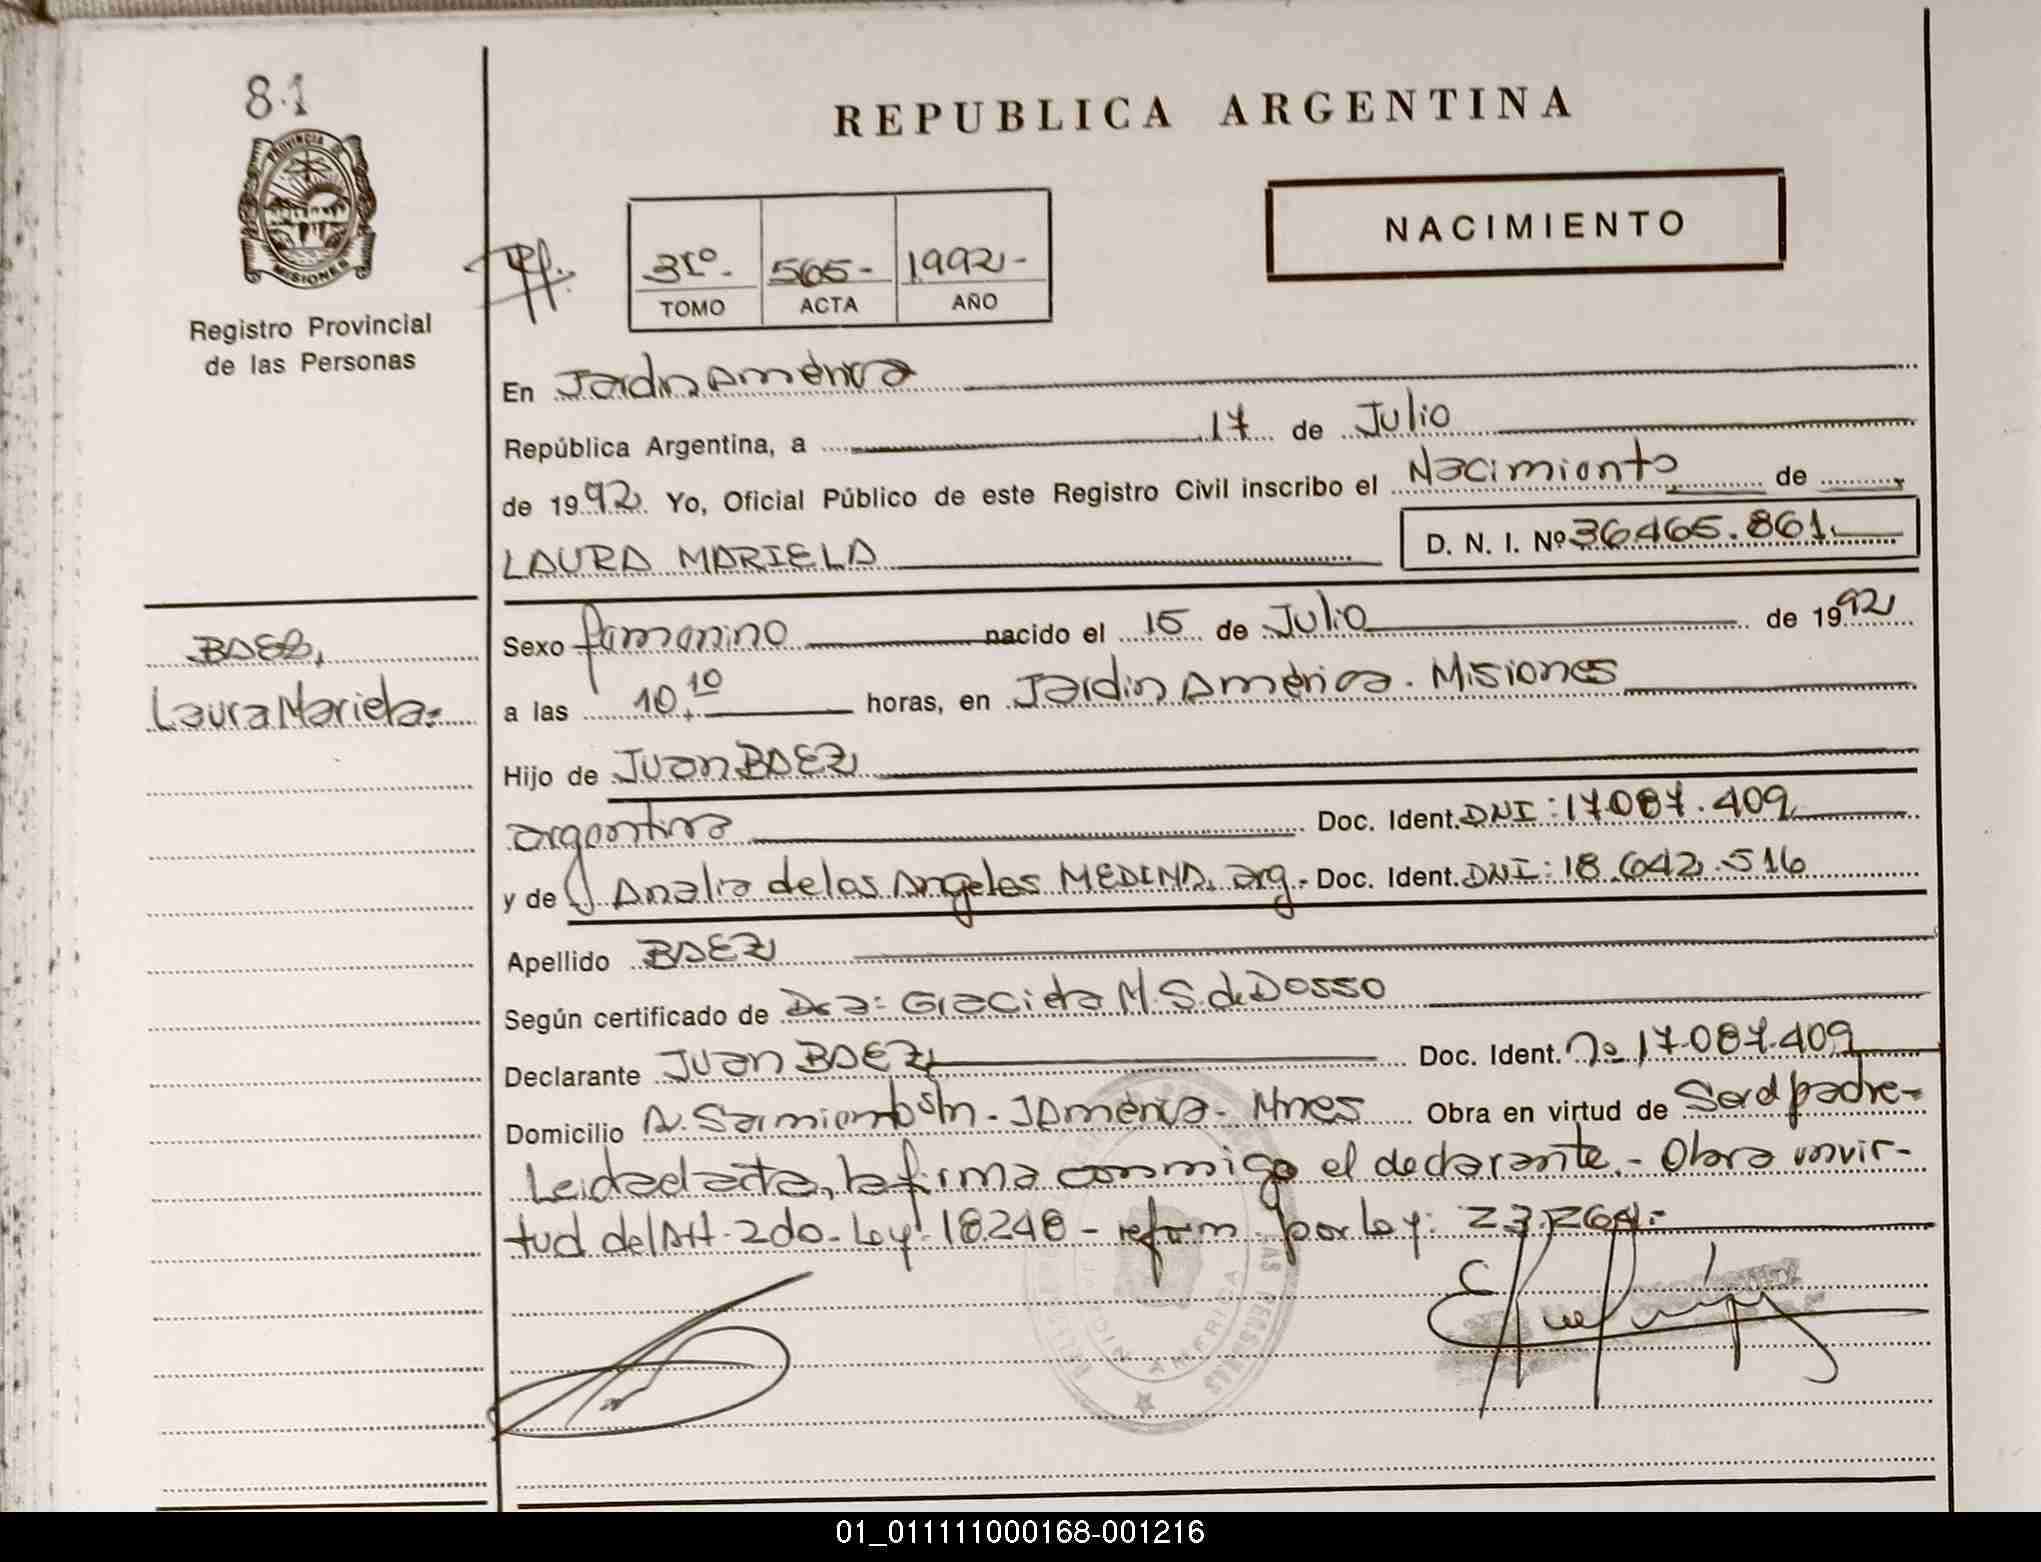 81
PROVINCIA DE
MISIONES
Registro Provincial
de las Personas
REPUBLICA ARGENTINA
NACIMIENTO
3Iº.- 565- 1992-
TOMO ACTA AÑO
En Jardín América
República Argentina, a 17 de Julio
de 1992 Yo, Oficial Público de este Registro Civil inscribo el Nacimiento de
LAURA MARIELA D. N. I. Nº 36465.861.
Sexo femenino nacido el 15 de Julio de 1992
BAEZ,
Laura Mariela=
a las 10,10 horas, en Jardín América. Misiones
Hijo de Juan BAEZ
argentina Doc. Ident. DNI: 17.087.409
y de Analia de los Angeles MEDINA, arg.- Doc. Ident. DNI: 18.642.516
Apellido BAEZ
Según certificado de Dra: Graciela M.S. de Dosso
Declarante Juan BAEZ Doc. Ident. nº 17.087.409
Domicilio Av. Sarmiento s/n - J América - Mnes Obra en virtud de Ser el padre-
Leída el acta, la firma conmigo el declarante.- Obra en vir-
tud del Art. 2do. Ley 18.248 - reform por ley: 23.264.-
AMERICA
01_011111000168-001216